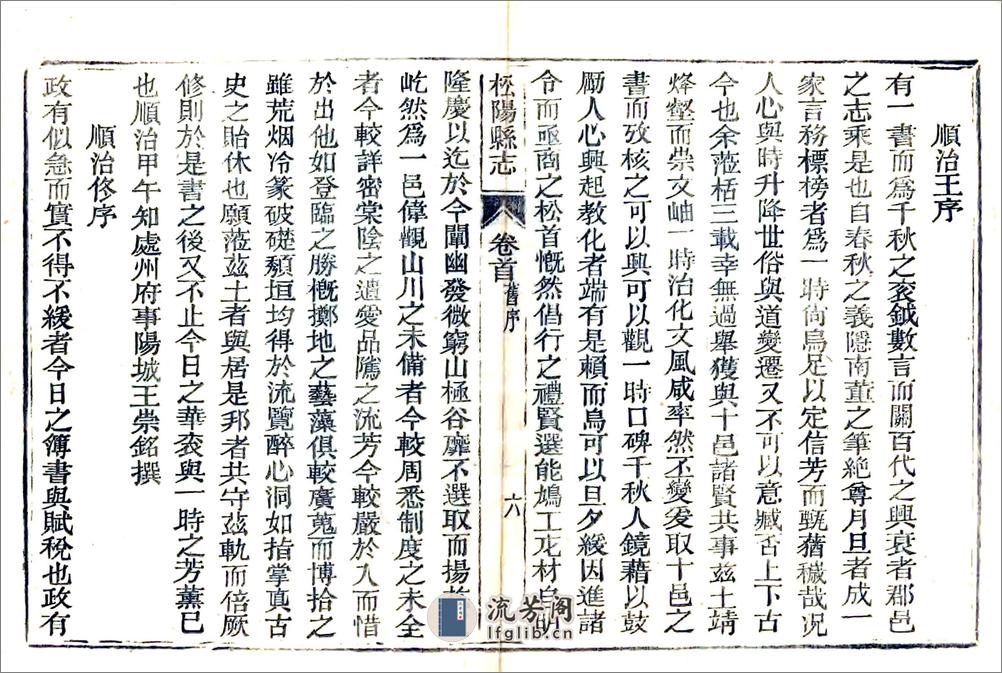 順治王序
有一書而爲千秋之袞鉞數言而關百代之興衰者郡邑
之志乘是也自春秋之義隱南董之筆絶尊月旦者成一
家言務標榜者爲一時尙烏足以定信芳而甄蕕穢哉况
人心與時升降世俗與道變遷又不可以意臧否上下古
今也余蒞栝三載幸無過舉獲與十邑諸賢共事茲土靖
烽壑而崇文岫一時治化文風咸率然丕變爰取十邑之
書而攷核之可以興可以觀一時口碑千秋人鏡藉以鼓
勵人心興起教化者端有是賴而烏可以旦夕緩因進諸
令而亟商之松首慨然倡行之禮賢選能鳩工庀材自明
松陽縣志
卷首
舊序
六
隆慶以迄於今闡幽發微窮山極谷靡不選取而揚
屹然爲一邑偉觀山川之未備者今較周悉制度之未全
者今較詳密棠陰之遺愛品隲之流芳今較嚴於入而惜
於出他如登臨之勝槪擲地之藝藻俱較廣蒐而博拾之
雖荒烟冷篆破礎頽垣均得於流覽醉心洞如指掌真古
史之貽休也願蒞茲土者與居是邦者共守茲軌而倍厥
修則於是書之後又不止今日之華袞與一時之芳薰已
也順治甲午知處州府事陽城王崇銘撰
順治修序
政有似急而實不得不緩者今日之簿書與賦稅也政有
流芳阁
lfglib.cn